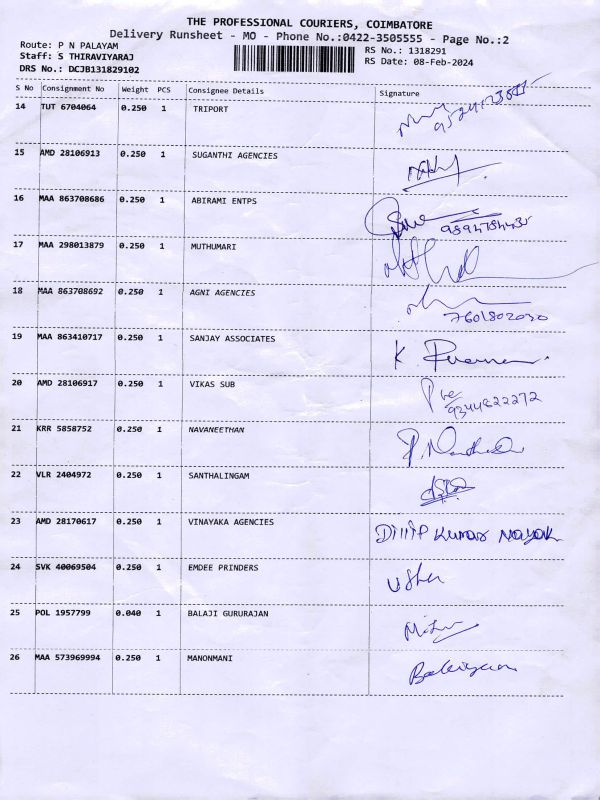 THE PROFESSIONAL COURIERS, COIMBATORE
Delivery Runsheet - MO - Phone No.:0422-3505555 - Page No.:2
Route: P N PALAYAM
Staff: S THIRAVIYARAJ
DRS No.: DCJB131829102
RS No.: 1318291
RS Date: 08-Feb-2024
S No Consignment No Weight PCS Consignee Details Signature
14 TUT 6704064 0.250 1 TRIPORT
15 AMD 28106913 0.250 1 SUGANTHI AGENCIES
16 MAA 863708686 0.250 1 ABIRAMI ENTPS
17 MAA 298013879 0.250 1 MUTHUMARI
18 MAA 863708692 0.250 1 AGNI AGENCIES
7601802030
19 MAA 863410717 0.250 1 SANJAY ASSOCIATES
20 AMD 28106917 0.250 1 VIKAS SUB
9344822272
21 KRR 5858752 0.250 1 NAVANEETHAN
22 VLR 2404972 0.250 1 SANTHALINGAM
23 AMD 28170617 0.250 1 VINAYAKA AGENCIES Dillip Kumar Nayak
24 SVK 40069504 0.250 1 EMDEE PRINDERS Usha
25 POL 1957799 0.040 1 BALAJI GURURAJAN
26 MAA 573969994 0.250 1 MANONMANI